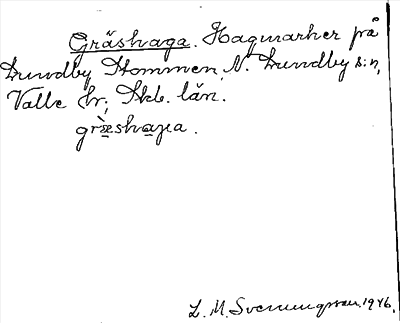 Gräshaga. Hagmarker på
Lundby Stommen, N. Lundby s:n,
Valle hr, Skb. län.
græshaga.
L. M. Svenungsson. 1946.